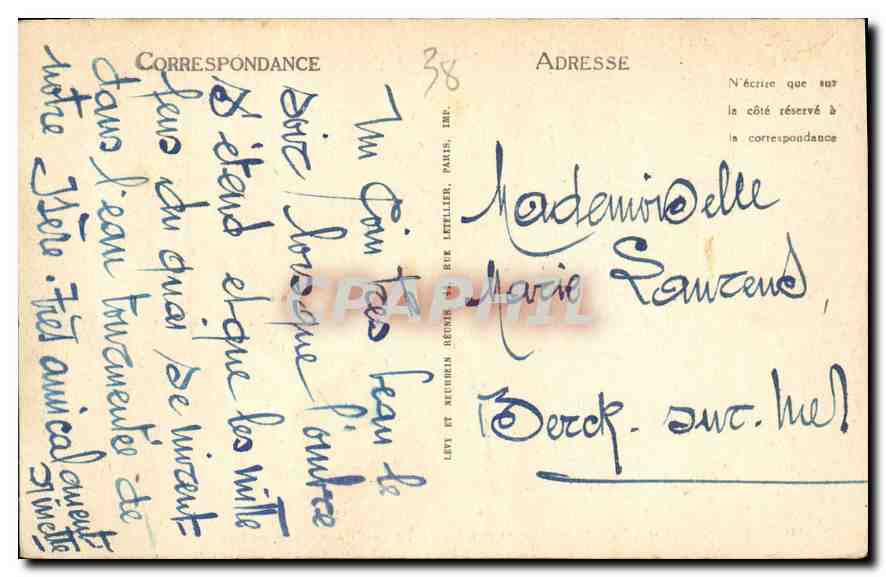 CORRESPONDANCE
38
ADRESSE
N'écrire que sur
le côté réservé à
la correspondance
Un Coin très beau le
soir, lorsque l'ombre
s'étend et que les mille
feux du quai se mirent
dans l'eau tourmentée de
notre Isère. Très amicalement
Ginette
LÉVY ET NEURDEIN RÉUNIS RUE LETELLIER, PARIS, IMP.
Mademoiselle
Marie Laurend,
Berck-sur-Mer
CPAPHIL